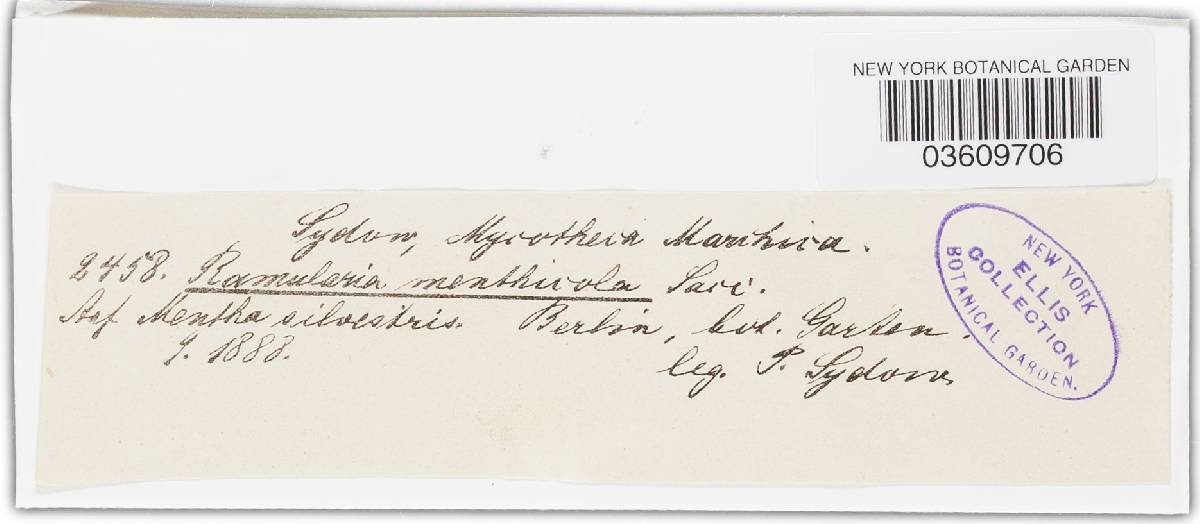 NEW YORK BOTANICAL GARDEN
03609706
Sydow, Mycotheca Marchica.
2458. Ramularia menthicola Sacc.
Auf Mentha silvestris. Berlin, bot. Garten.
9. 1888.
leg. P. Sydow.
NEW YORK
ELLIS
COLLECTION
BOTANICAL GARDEN.